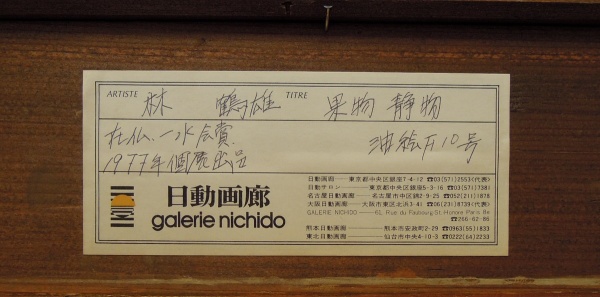 ARTISTE 林 鶴雄 TITRE 果物 静物
在仏. 一水会賞. 油絵F10号
1977年個展出品
日動画廊
galerie nichido
日動画廊——東京都中央区銀座7-4-12 ☎03(571)2553(代表)
日動サロン——東京都中央区銀座5-3-16 ☎03(571)7381
名古屋日動画廊——名古屋市中区錦2-9-25 ☎052(211)1878
大阪日動画廊——大阪市東区北浜3-41 ☎06(231)8739(代表)
GALERIE NICHIDO——61, Rue du Faubourg-St-Honore Paris 8e
☎266-62-86
熊本日動画廊——熊本市安政町2-29 ☎0963(55)1833
東北日動画廊——仙台市中央4-10-3 ☎0222(64)2233